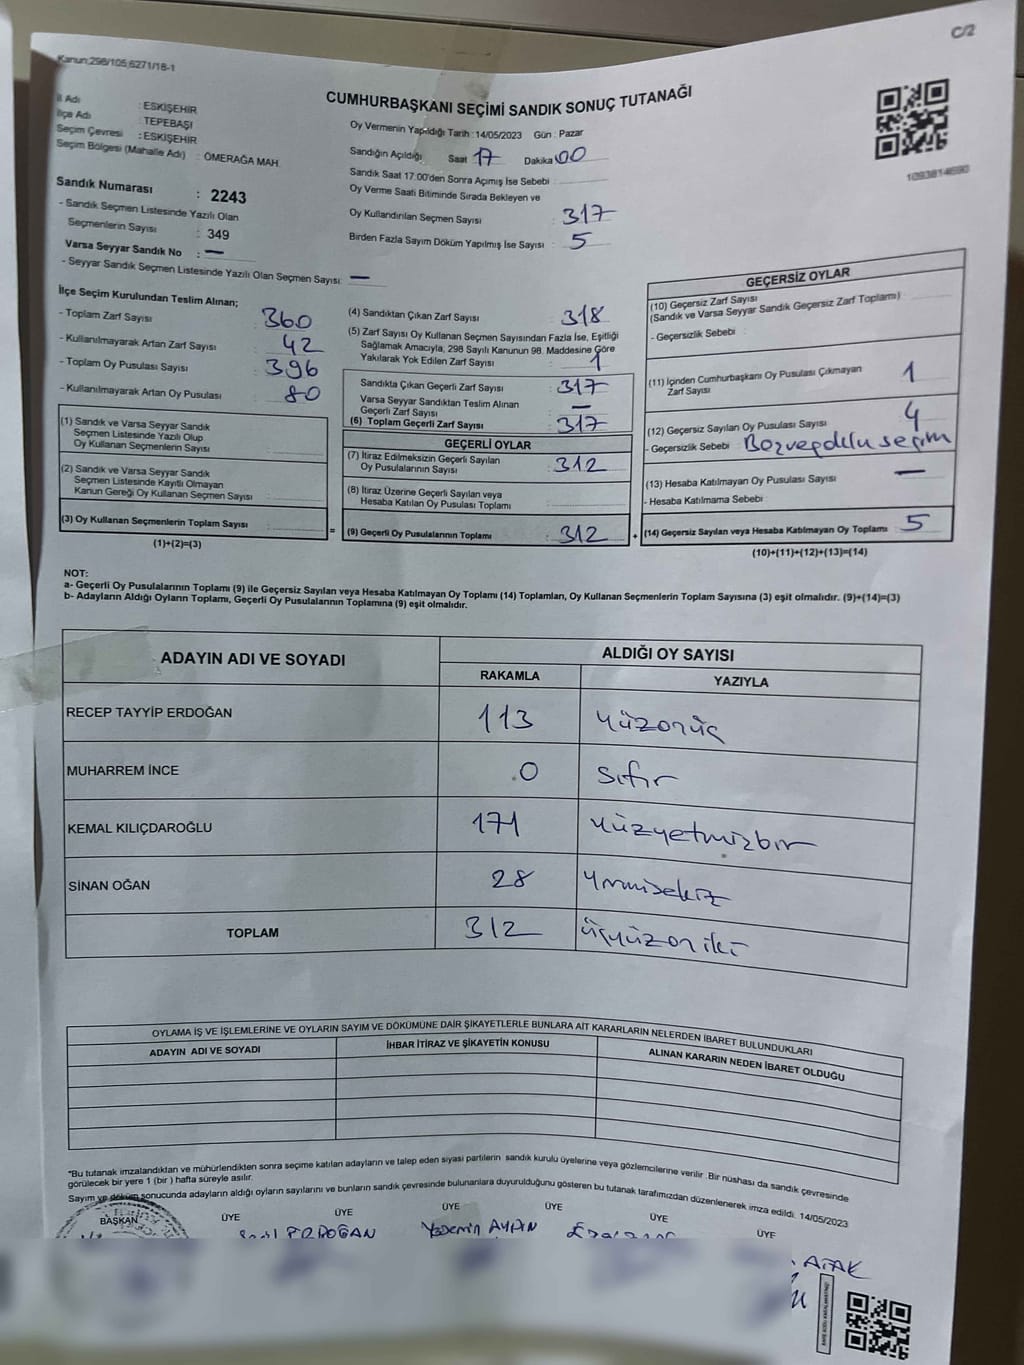 C/2
Kanun:298/105;6271/18-1
CUMHURBAŞKANI SEÇİMİ SANDIK SONUÇ TUTANAĞI
1093814690
İl Adı : ESKİŞEHİR
İlçe Adı : TEPEBAŞI
Seçim Çevresi : ESKİŞEHİR
Seçim Bölgesi (Mahalle Adı) : ÖMERAĞA MAH.
Oy Vermenin Yapıldığı Tarih : 14/05/2023 Gün : Pazar
Sandığın Açıldığı Saat 17 Dakika 00
Sandık Saat 17:00'den Sonra Açımış İse Sebebi :
Oy Verme Saati Bitiminde Sırada Bekleyen ve
Oy Kullandırılan Seçmen Sayısı : 317
Birden Fazla Sayım Döküm Yapılmış İse Sayısı : 5
Sandık Numarası : 2243
- Sandık Seçmen Listesinde Yazılı Olan
Seçmenlerin Sayısı : 349
Varsa Seyyar Sandık No : —
- Seyyar Sandık Seçmen Listesinde Yazılı Olan Seçmen Sayısı: —
İlçe Seçim Kurulundan Teslim Alınan;
- Toplam Zarf Sayısı : 360
- Kullanılmayarak Artan Zarf Sayısı : 42
- Toplam Oy Pusulası Sayısı : 396
- Kullanılmayarak Artan Oy Pusulası : 80
(1) Sandık ve Varsa Seyyar Sandık
Seçmen Listesinde Yazılı Olup
Oy Kullanan Seçmenlerin Sayısı :
(2) Sandık ve Varsa Seyyar Sandık
Seçmen Listesinde Kayıtlı Olmayan
Kanun Gereği Oy Kullanan Seçmen Sayısı :
(3) Oy Kullanan Seçmenlerin Toplam Sayısı :
(1)+(2)=(3)
(4) Sandıktan Çıkan Zarf Sayısı : 318
(5) Zarf Sayısı Oy Kullanan Seçmen Sayısından Fazla İse, Eşitliği
Sağlamak Amacıyla, 298 Sayılı Kanunun 98. Maddesine Göre
Yakılarak Yok Edilen Zarf Sayısı : 1
Sandıkta Çıkan Geçerli Zarf Sayısı : 317
Varsa Seyyar Sandıktan Teslim Alınan
Geçerli Zarf Sayısı : —
(6) Toplam Geçerli Zarf Sayısı : 317
GEÇERLİ OYLAR
(7) İtiraz Edilmeksizin Geçerli Sayılan
Oy Pusulalarının Sayısı : 312
(8) İtiraz Üzerine Geçerli Sayılan veya
Hesaba Katılan Oy Pusulası Toplamı :
= (9) Geçerli Oy Pusulalarının Toplamı : 312
GEÇERSİZ OYLAR
(10) Geçersiz Zarf Sayısı
(Sandık ve Varsa Seyyar Sandık Geçersiz Zarf Toplamı) :
- Geçersizlik Sebebi :
(11) İçinden Cumhurbaşkanı Oy Pusulası Çıkmayan
Zarf Sayısı : 1
(12) Geçersiz Sayılan Oy Pusulası Sayısı : 4
- Geçersizlik Sebebi :
(13) Hesaba Katılmayan Oy Pusulası Sayısı : —
- Hesaba Katılmama Sebebi :
+ (14) Geçersiz Sayılan veya Hesaba Katılmayan Oy Toplamı : 5
(10)+(11)+(12)+(13)=(14)
NOT:
a- Geçerli Oy Pusulalarının Toplamı (9) ile Geçersiz Sayılan veya Hesaba Katılmayan Oy Toplamı (14) Toplamları, Oy Kullanan Seçmenlerin Toplam Sayısına (3) eşit olmalıdır. (9)+(14)=(3)
b- Adayların Aldığı Oyların Toplamı, Geçerli Oy Pusulalarının Toplamına (9) eşit olmalıdır.
ADAYIN ADI VE SOYADI
ALDIĞI OY SAYISI
RAKAMLA YAZIYLA
RECEP TAYYİP ERDOĞAN 113 yüzonüç
MUHARREM İNCE 0 sıfır
KEMAL KILIÇDAROĞLU 171 yüzyetmişbir
SİNAN OĞAN 28 yirmisekiz
TOPLAM 312 üçyüzoniki
OYLAMA İŞ VE İŞLEMLERİNE VE OYLARIN SAYIM VE DÖKÜMÜNE DAİR ŞİKAYETLERLE BUNLARA AİT KARARLARIN NELERDEN İBARET BULUNDUKLARI
ADAYIN ADI VE SOYADI İHBAR İTİRAZ VE ŞİKAYETİN KONUSU ALINAN KARARIN NEDEN İBARET OLDUĞU
*Bu tutanak imzalandıktan ve mühürlendikten sonra seçime katılan adayların ve talep eden siyasi partilerin sandık kurulu üyelerine veya gözlemcilerine verilir. Bir nüshası da sandık çevresinde
görülecek bir yere 1 (bir) hafta süreyle asılır.
Sayım ve döküm sonucunda adayların aldığı oyların sayılarını ve bunların sandık çevresinde bulunanlara duyurulduğunu gösteren bu tutanak tarafımızdan düzenlenerek imza edildi. 14/05/2023
BAŞKAN ÜYE ÜYE ÜYE ÜYE ÜYE ÜYE
ERDOĞAN Yasemin